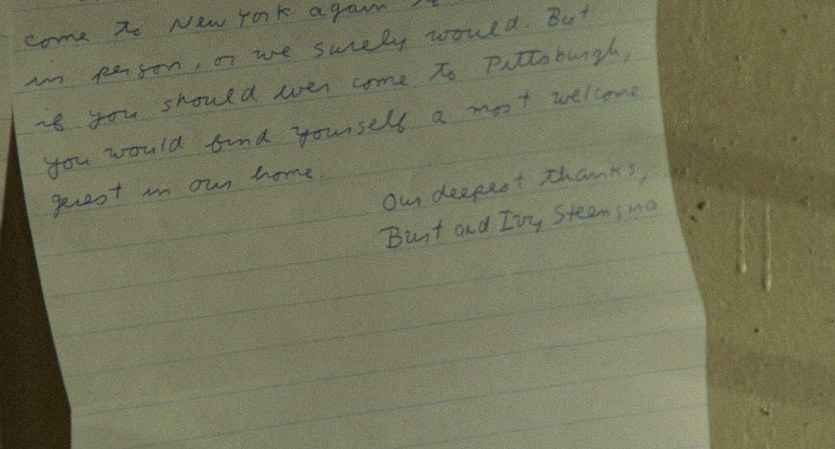 come to New York again
in person, or we surely would. But
if you should ever come to Pittsburgh,
you would find yourself a most welcome
guest in our home.
Our deepest thanks,
Burt and Ivy Steensma